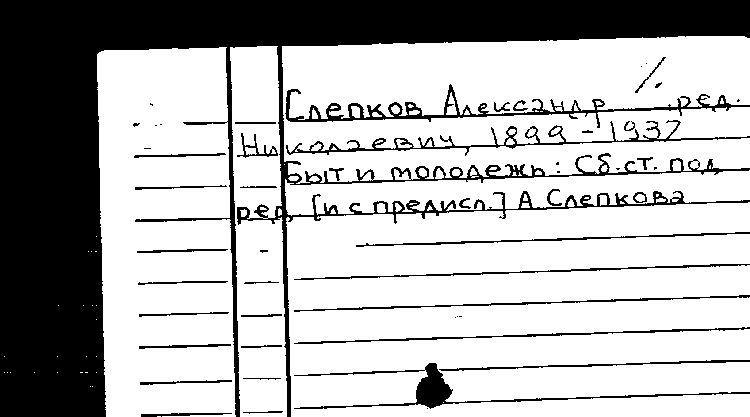 Слепков, Александр ред.
Николаевич, 1899-1937
Быт и молодежь: Сб. ст. под
ред. [и с предисл.] А Слепкова